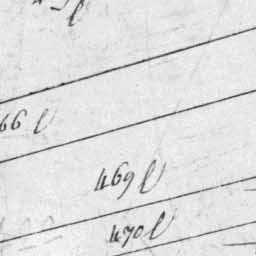 66 l
469 l
470 l